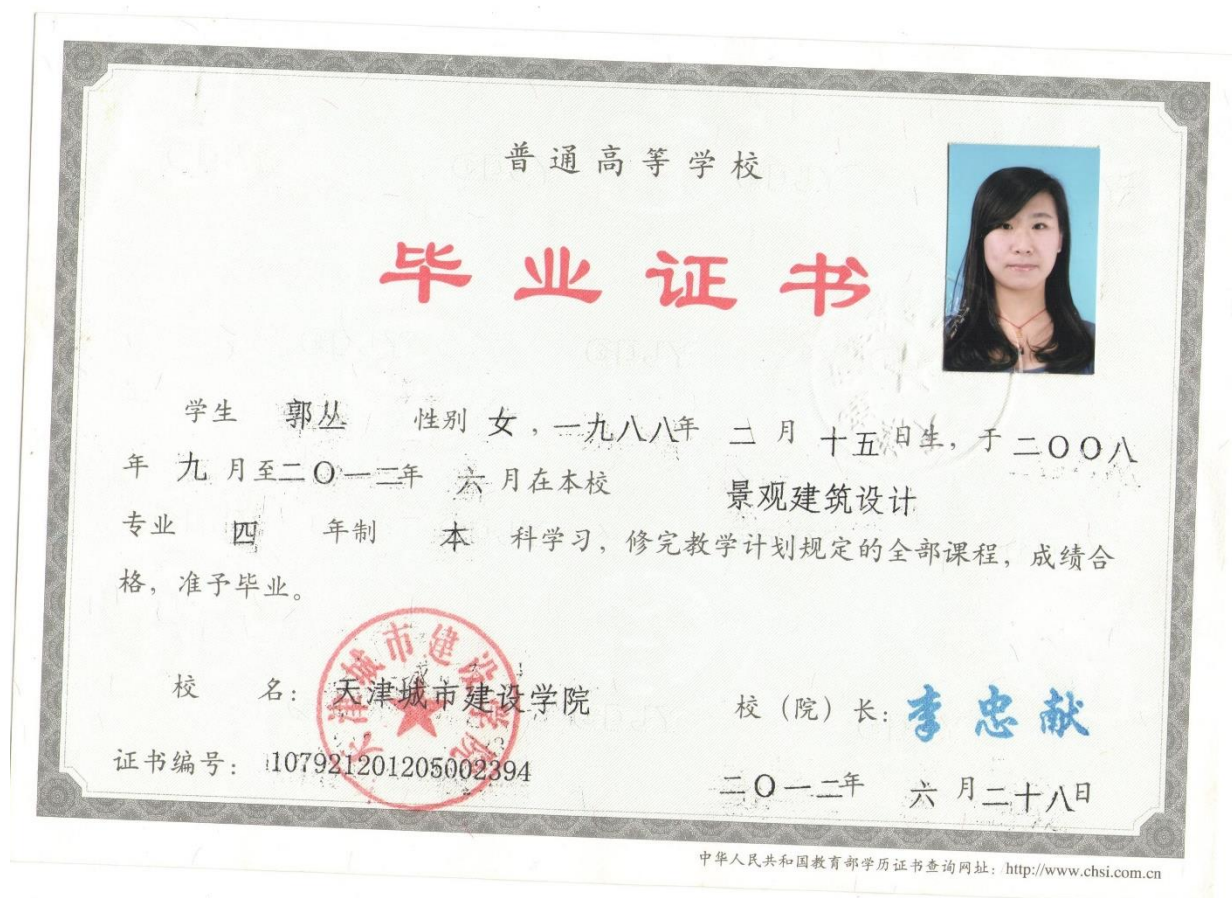 普通高等学校
毕业证书
学生 郭丛 性别 女，一九八八年 二月 十五日生，于二〇〇八
年 九月至二〇一二年 六月在本校 景观建筑设计
专业 四 年制 本 科学习，修完教学计划规定的全部课程，成绩合
格，准予毕业。
天津城市建设学院
校 名：天津城市建设学院 校（院）长：李忠献
证书编号：107921201205002394 二〇一二年 六月二十八日
中华人民共和国教育部学历证书查询网址：http://www.chsi.com.cn